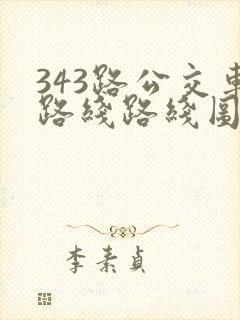 343路公交車
路綫路綫圖
李素貞